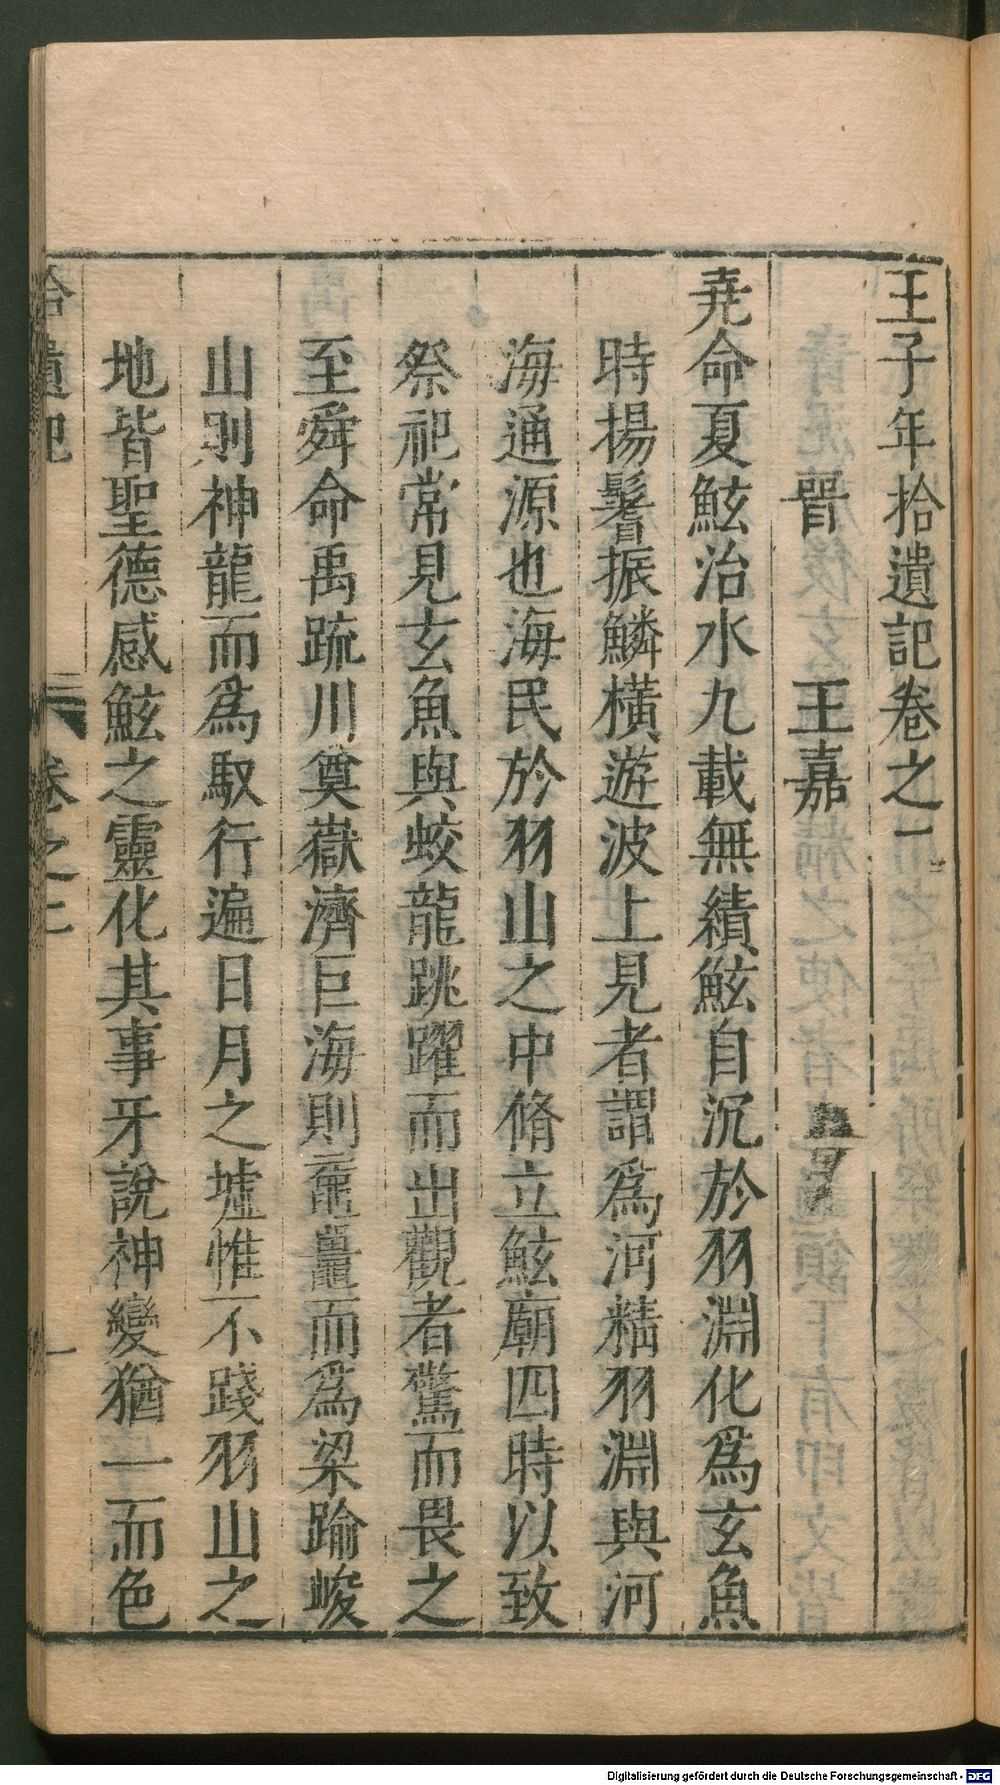 王子年拾遺記卷之一
晉 王嘉
堯命夏鮌治水九載無績鮌自沉於羽淵化爲玄魚
時揚鬐振鱗橫遊波上見者謂爲河精羽淵與河
海通源也海民於羽山之中脩立鮌廟四時以致
祭祀常見玄魚與蛟龍跳躍而出觀者驚而畏之
至舜命禹疏川奠嶽濟巨海則黿鼉而爲梁踰峻
山則神龍而爲馭行遍日月之墟惟不踐羽山之
地皆聖德感鮌之靈化其事牙說神變猶一而色
拾遺記 卷之一 一
Digitalisierung gefördert durch die Deutsche Forschungsgemeinschaft - DFG